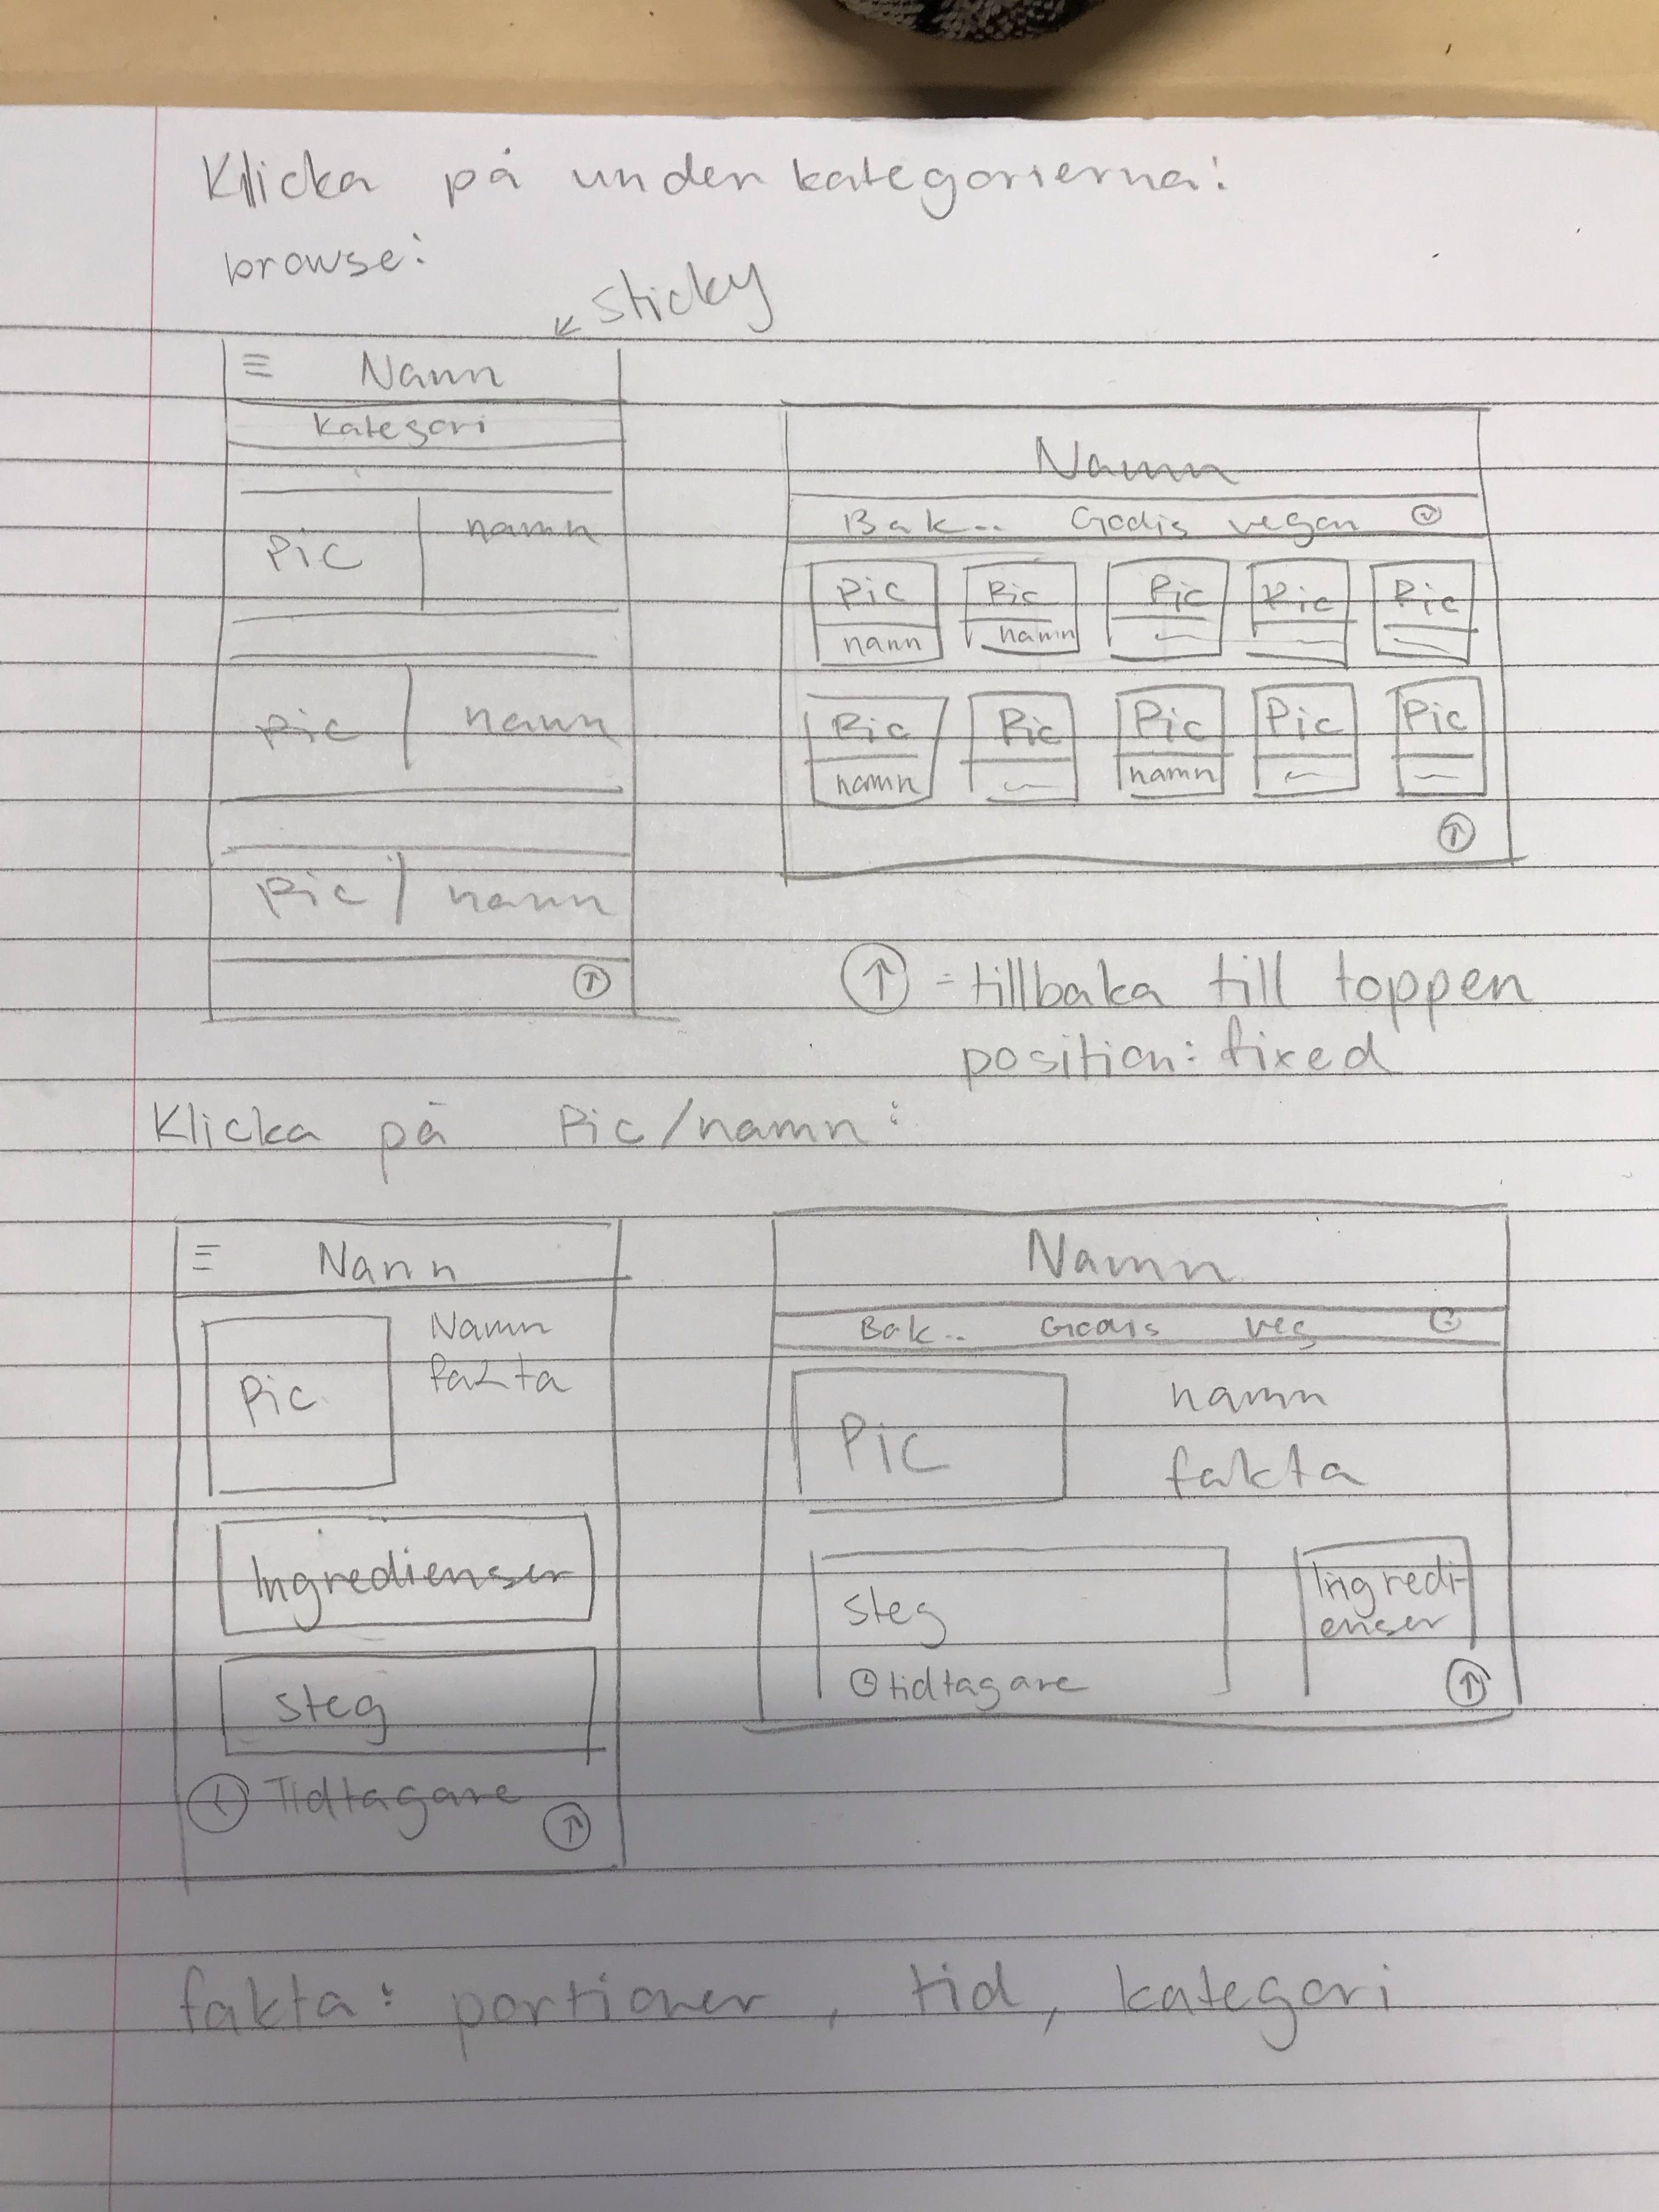 Klicka på underkategorierna:
browse:
sticky
Namn
Kategori
Pic namn
Pic namn
Pic namn
Namn
Bak.. Godis vegan
Pic Pic Pic Pic Pic
namn namn
Pic Pic Pic Pic Pic
namn namn
↑ - tillbaka till toppen
position: fixed
Klicka på Pic/namn:
Namn
Pic
Namn
fakta
Ingredienser
Steg
Tidtagare
Namn
Bak.. Godis veg
Pic
namn
fakta
Steg
tidtagare
Ingredi-
enser
fakta: portioner, tid, kategori